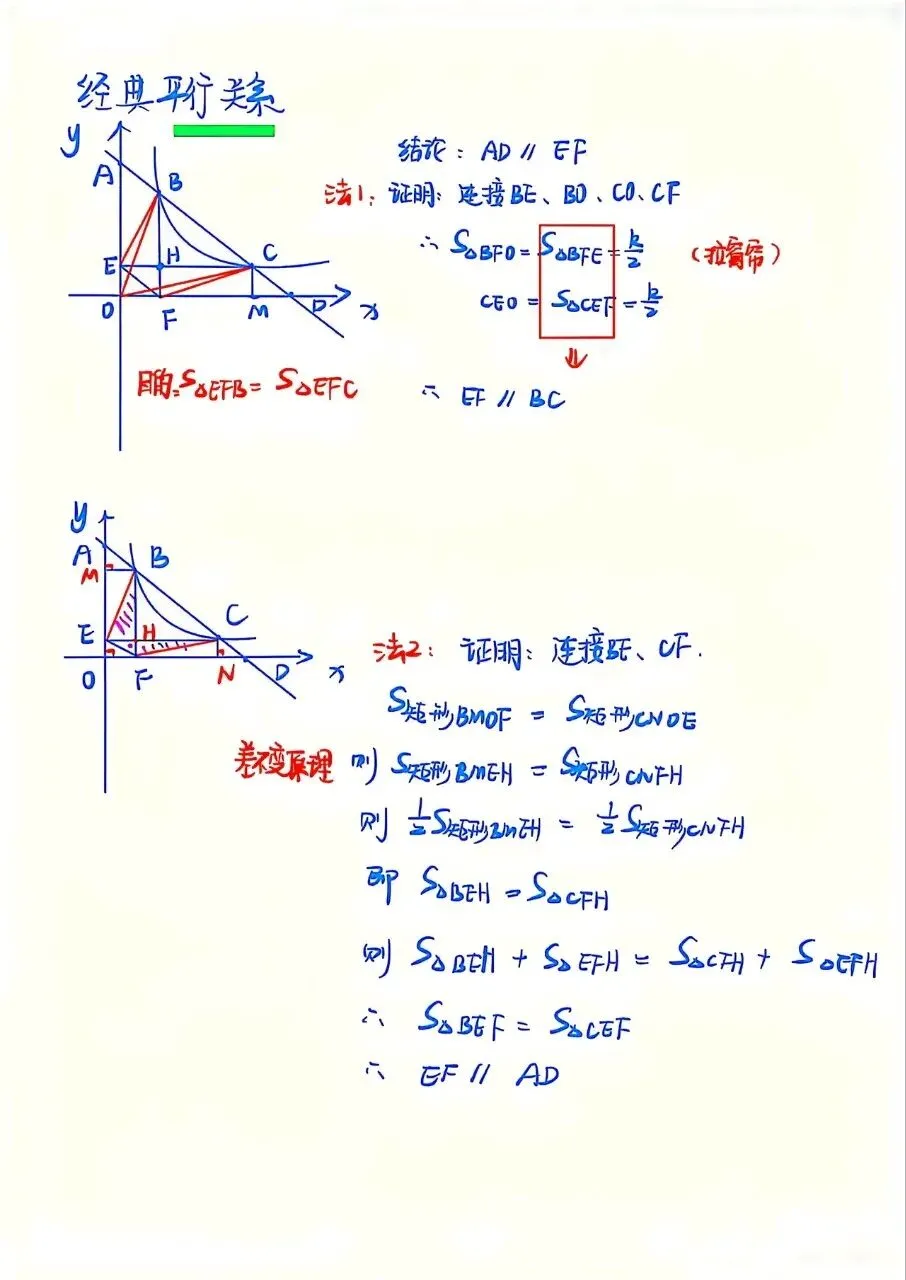 经典平行关系
y
A
B
结论：AD // EF
法1：证明：连接BE、BO、CO、CF
∴ S△BFO = S△BFE = k/2 （拉窗帘）
E H C
CEO = S△CEF = k/2
O F M D x
目的：S△EFB = S△EFC
∴ EF // BC
y
A B
M
C
E H
O F N D x
法2：证明：连接BE、CF.
S矩形BMOF = S矩形CNOE
差不变原理 则 S矩形BMEH = S矩形CNFH
则 1/2 S矩形BMEH = 1/2 S矩形CNFH
即 S△BEH = S△CFH
则 S△BEH + S△EFH = S△CFH + S△EFH
∴ S△BEF = S△CEF
∴ EF // AD